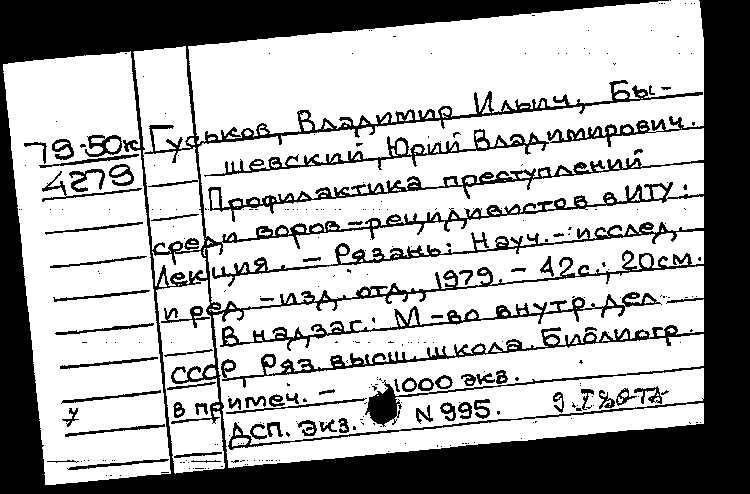 79-50к
4279
Гуськов, Владимир Ильич, Бы-
шевский, Юрий Владимирович.
Профилактика преступлений
среди воров-рецидивистов в ИТУ:
Лекция. - Рязань: Науч.-исслед.
и ред.-изд. отд., 1979. - 42с.; 20см.
В надзаг.: М-во внутр. дел
СССР, Ряз. высш. школа. Библиогр.
в примеч. - 1000 экз.
ДСП. Экз. N 995.